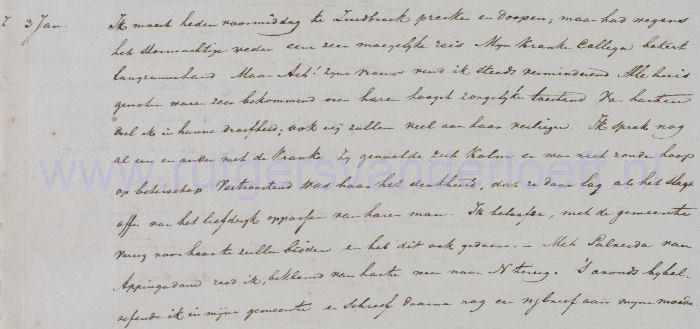 Z 3 Jan. Ik moest heden voormiddag te Zuidbroek preeken en doopen, maar had wegens
het stormachtige weder eene zeer moeijelijke reis. Mijn kranke Collega beterde
langzamerhand. Maar Ach! zijne vrouw vond ik steeds verminderend. Alle huis
genoten waren zeer bekommerd over haren hoogst zorgelijke toestand. Van harte
deel ik in hunne droefheid, ook wij zullen veel aan haar verliezen. Ik sprak nog
al een en ander met de kranke. Zij gevoelde zich kalm en was niet zonder hoop
op beterschap. Vertroostend was haar het denkbeeld, dat ze daar lag als het slagt
offer van het liefderijk oppassen van haren man. Ik beloofde, met de gemeente
vurig voor haar te zullen bidden en heb dit ook gedaan. – Met van
Appingadam reed ik, beklemd van harte weer naar N terug. 's avonds bybel
oefende ik in mijne gemeente en schreef daarna nog en rijbrief aan mijne moeder
www.rutgersvanderloeff.nl